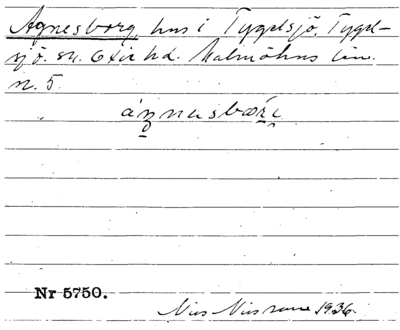 Agnesborg, hus i Tygelsjö, Tygel-
sjö sn. Oxie hd. Malmöhus län.
n. 5.
Nr 5750.
Nils Nilsson 1936.